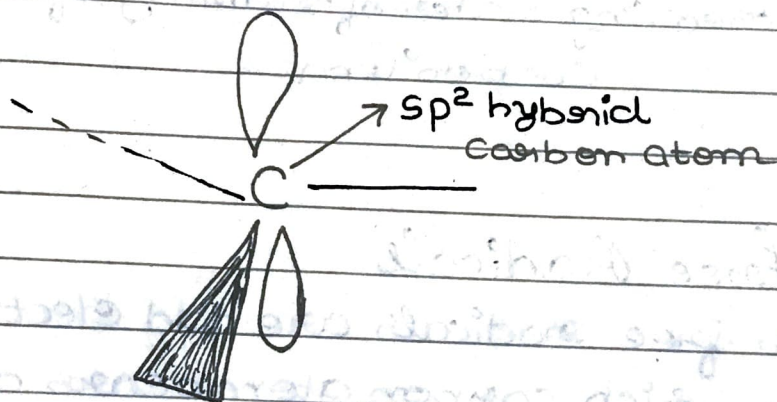 sp² hybrid
carbon atom
C